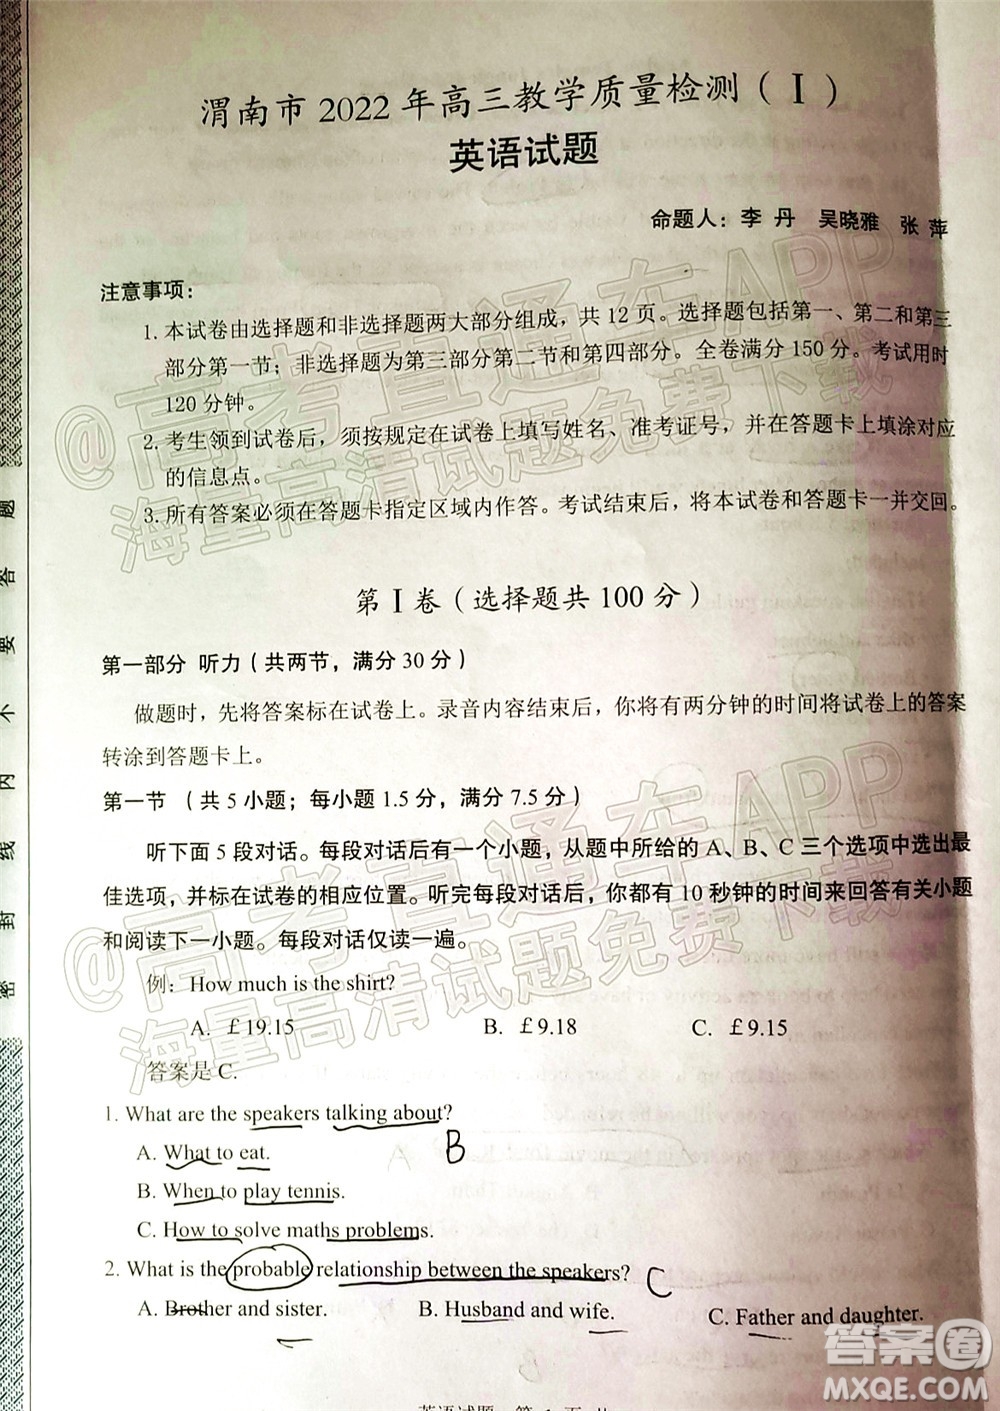 渭南市 2022 年高三教学质量检测（Ⅰ）
英语试题
命题人：李 丹 吴晓雅 张 萍
注意事项：
1. 本试卷由选择题和非选择题两大部分组成，共 12 页。选择题包括第一、第二和第三
部分第一节；非选择题为第三部分第二节和第四部分。全卷满分 150 分。考试用时
120 分钟。
2. 考生领到试卷后，须按规定在试卷上填写姓名、准考证号，并在答题卡上填涂对应
的信息点。
3. 所有答案必须在答题卡指定区域内作答。考试结束后，将本试卷和答题卡一并交回。
第Ⅰ卷（选择题共 100 分）
第一部分 听力（共两节，满分 30 分）
做题时，先将答案标在试卷上。录音内容结束后，你将有两分钟的时间将试卷上的答案
转涂到答题卡上。
第一节 （共 5 小题；每小题 1.5 分，满分 7.5 分）
听下面 5 段对话。每段对话后有一个小题，从题中所给的 A、B、C 三个选项中选出最
佳选项，并标在试卷的相应位置。听完每段对话后，你都有 10 秒钟的时间来回答有关小题
和阅读下一小题。每段对话仅读一遍。
例：How much is the shirt?
A. ￡19.15 B. ￡9.18 C. ￡9.15
答案是 C.
1. What are the speakers talking about?
B
A. What to eat.
B. When to play tennis.
C. How to solve maths problems.
2. What is the probable relationship between the speakers? C
A. Brother and sister. B. Husband and wife. C. Father and daughter.
密 封 线 内 不 要 答 题
@高考直通车APP
海量高清试题免费下载
@高考直通车APP
海量高清试题免费下载
答案圈
MXQE.COM